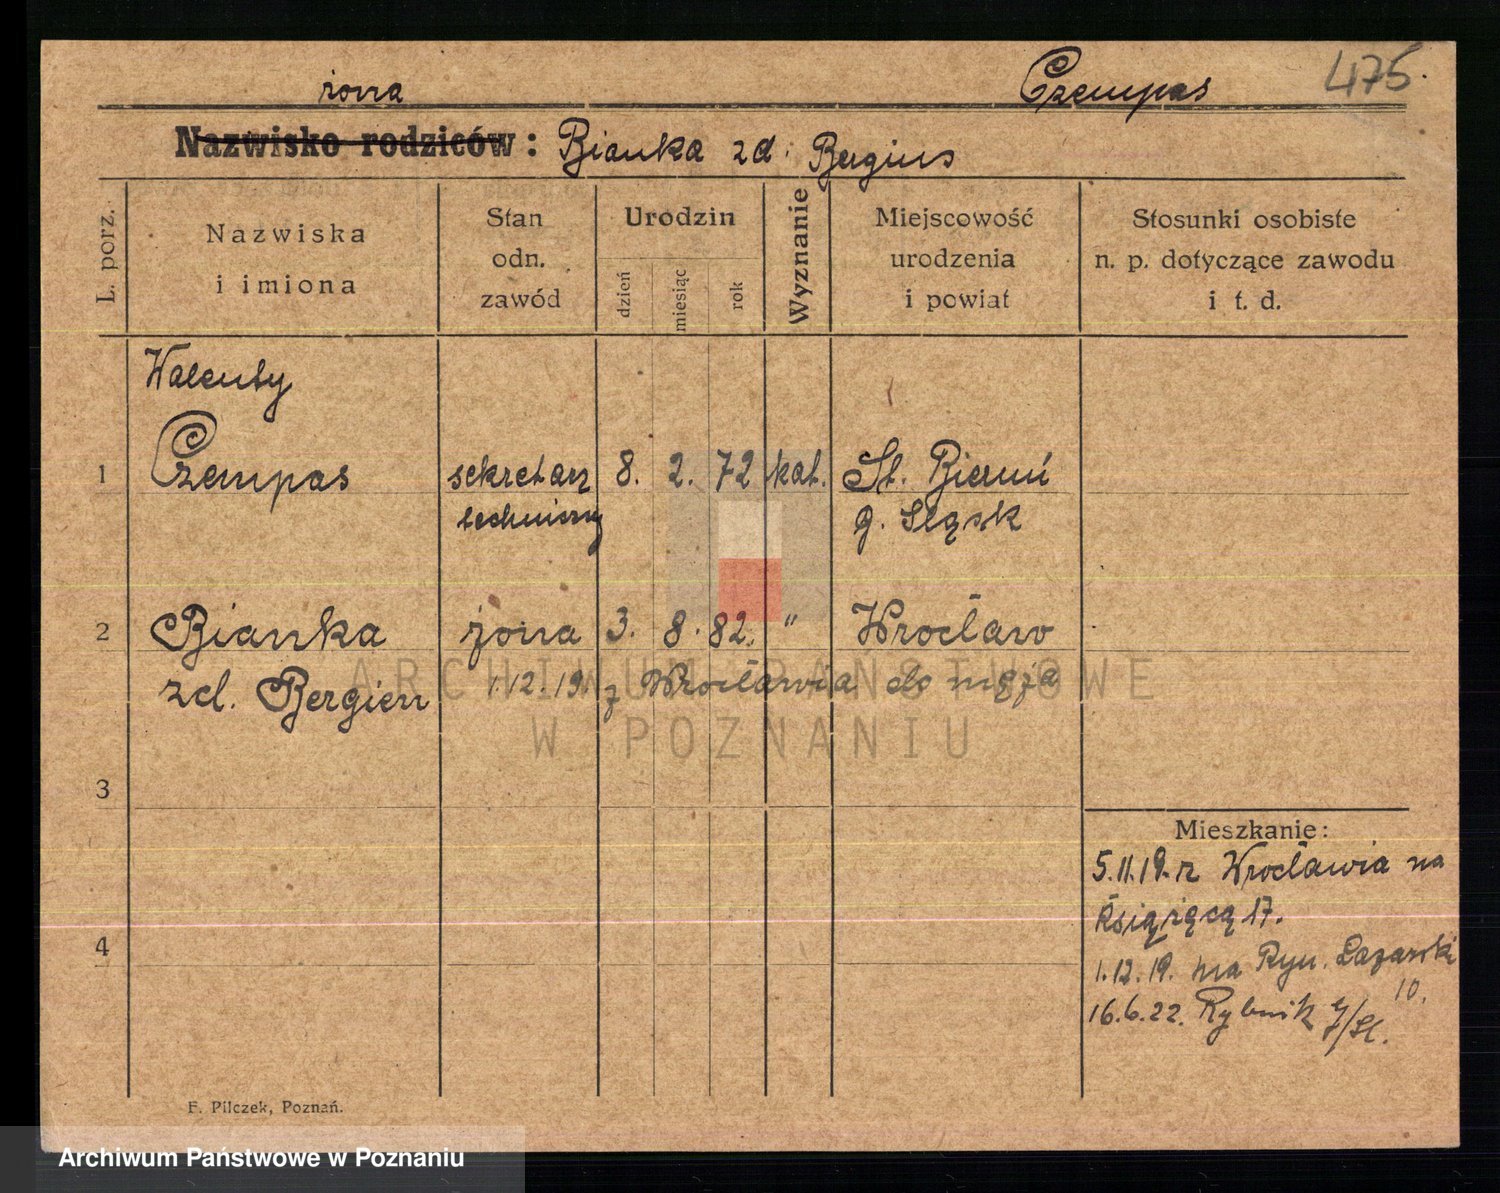 żona
Czempas
475.
Nazwisko rodziców: Bianka zd. Bergius
L. porz.
Nazwiska
i imiona
Stan
odn.
zawód
Urodzin
dzień
miesiąc
rok
Wyznanie
Miejscowość
urodzenia
i powiat
Stosunki osobiste
n. p. dotyczące zawodu
i t. d.
Walenty
1 Czempas sekretarz 8. 2. 72 kat. St. Bieruń
techniczny g. Śląsk
2 Bianka żona 3. 8. 82. " Wrocław
zd. Bergien 1.12.19. z Wrocławia do męża
ARCHIWUM PAŃSTWOWE
W POZNANIU
3
Mieszkanie:
5.11.19. z Wrocławia na
Książęcą 17.
4
1.12.19. na Ryn. Łazarski
10.
16.6.22. Rybnik g/Śl.
F. Pilczek, Poznań.
Archiwum Państwowe w Poznaniu